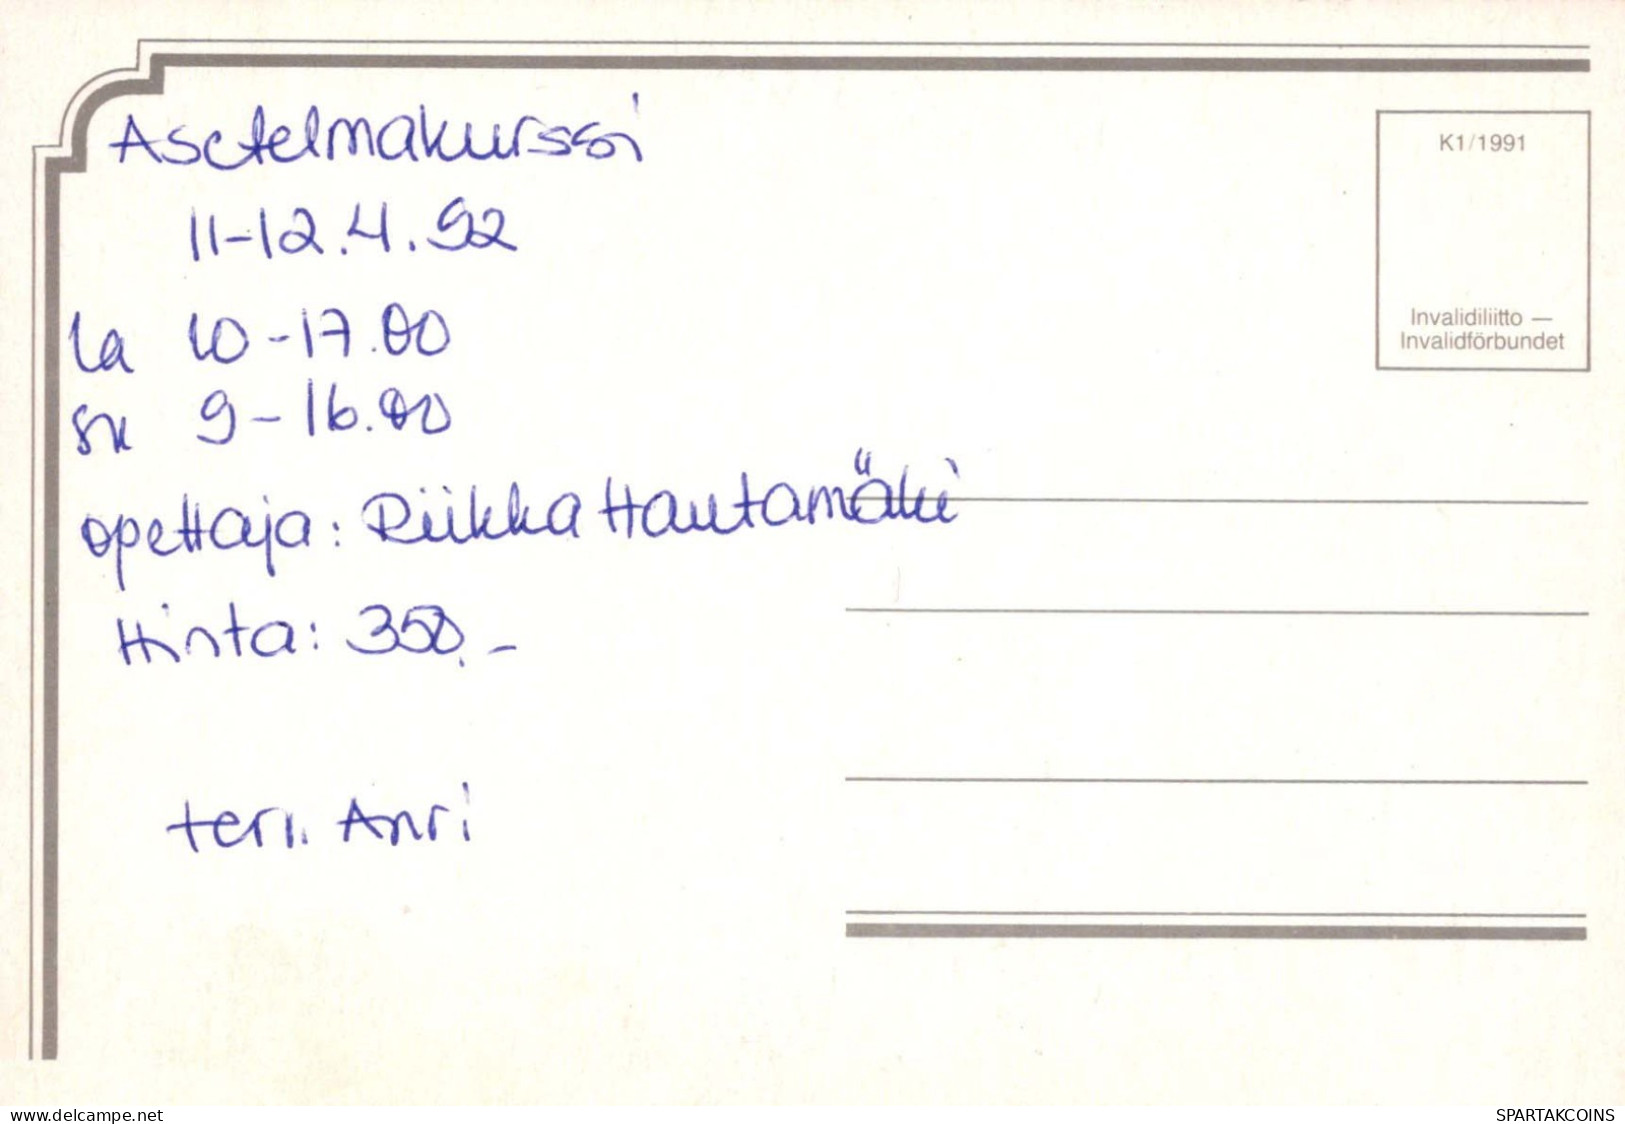 Asetelmakurssi
11-12.4.92
la 10-17.00
su 9-16.00
opettaja: Riikka Hautamäki
Hinta: 350.-
terv. Anri
K1/1991
Invalidiliitto —
Invalidförbundet
www.delcampe.net
SPARTAKCOINS